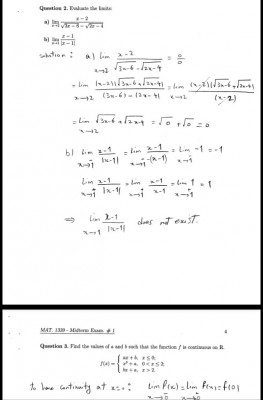 Question 2. Evaluate the limits:
a) lim x→2 (x−2)/(√(3x−6) − √(2x−4))
b) lim x→1 (x−1)/|x−1|
Solution: a) lim x→2 (x−2)/(√(3x-6) − √(2x-4)) = 0/0
= lim x→2 (x-2)(√(3x-6) + √(2x-4))/((3x-6) − (2x-4)) = lim x→2 (x-2)(√(3x-6) + √(2x-4))/(x-2)
= lim x→2 √(3x-6) + √(2x-4) = √0 + √0 = 0
b) lim x→1⁻ (x-1)/|x-1| = lim x→1⁻ (x-1)/-(x-1) = lim x→1⁻ -1 = -1
lim x→1⁺ (x-1)/|x-1| = lim x→1⁺ (x-1)/(x-1) = lim x→1⁺ 1 = 1
⇒ lim x→1 (x-1)/|x-1| does not exist.
MAT. 1339 - Midterm Exam. # 1 4
Question 3. Find the values of a and b such that the function f is continuous on R.
ax + b, x ≤ 0,
f(x) =
bx + a, x > 2.
To have continuity at x=0: lim f(x) = lim f(x) = f(0)
x→0⁻ x→0⁺